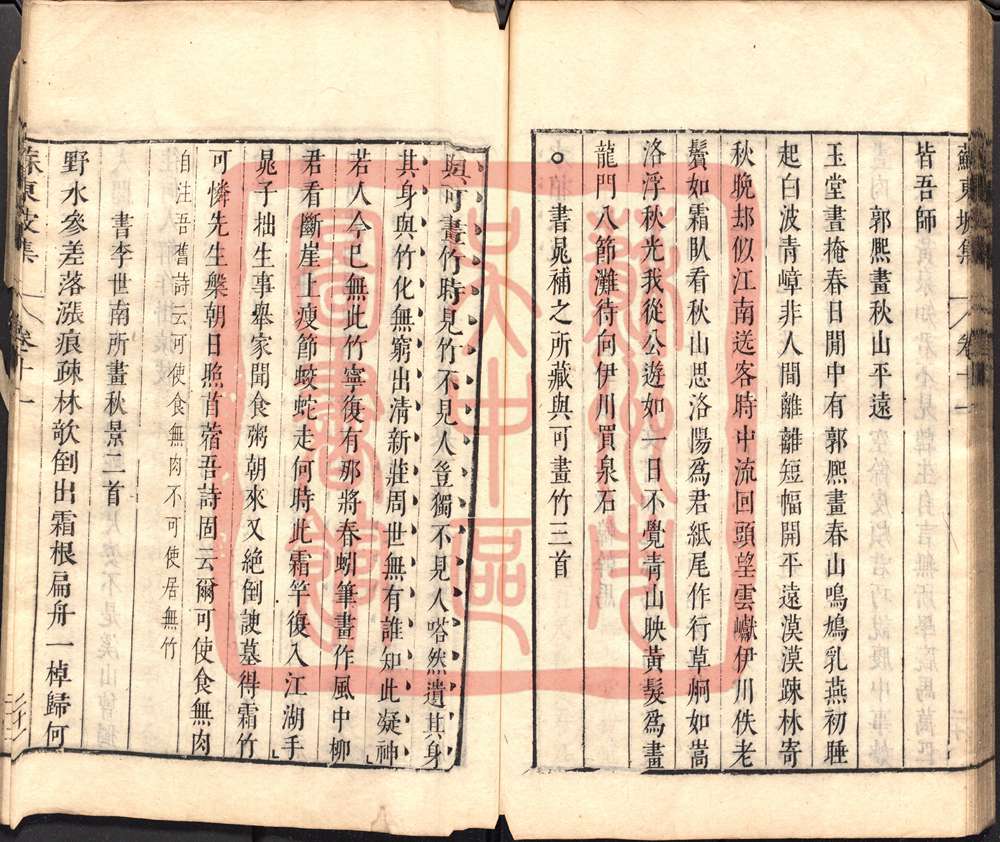 蘇東坡集 卷十一
皆吾師
郭熙畫秋山平遠
玉堂晝掩春日閒中有郭熙畫春山鳴鳩乳燕初睡
起白波青嶂非人間離離短幅開平遠漠漠踈林寄
秋晚却似江南送客時中流回頭望雲巘伊川佚老
鬢如霜臥看秋山思洛陽爲君紙尾作行草炯如嵩
洛浮秋光我從公遊如一日不覺青山映黃髮爲畫
龍門八節灘待向伊川買泉石
書晁補之所藏與可畫竹三首
與可畫竹時見竹不見人豈獨不見人嗒然遺其身
其身與竹化無窮出清新莊周世無有誰知此凝神
若人今已無此竹寧復有那將春蚓筆畫作風中柳
君看斷崖上瘦節蛟蛇走何時此霜竿復入江湖手
晁子拙生事舉家聞食粥朝來又絕倒諛墓得霜竹
可憐先生槃朝日照苜蓿吾詩固云爾可使食無肉
自注吾舊詩云可使食無肉不可使居無竹
書李世南所畫秋景二首
野水參差落漲痕疎林欹倒出霜根扁舟一棹歸何
蘇東坡集 卷十一